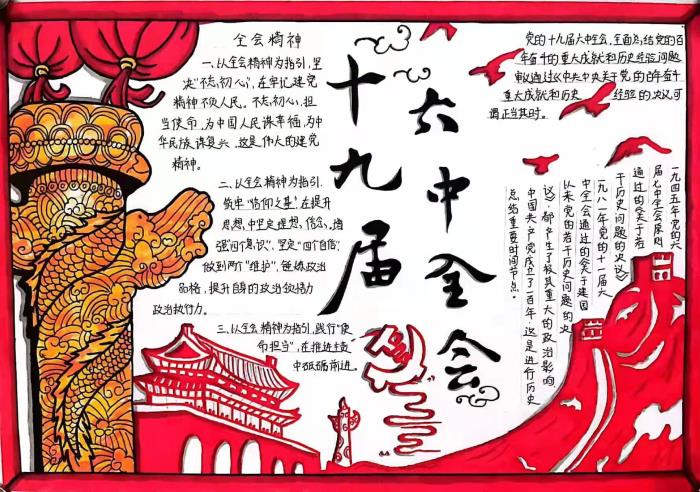 十九届
六中全会
全会精神
一、以全会精神为指引,坚
决"不忘初心",在牢记建党
精神不负人民。不忘初心,担
当使命,为中国人民谋幸福,为中
华民族谋复兴,这是伟大的建党
精神。
二、以全会精神为指引,
筑牢"信仰之基",在提升
思想中坚定理想,信念,增
强"四个意识",坚定"四个自信"
做到两个"维护",锤炼政治
品格,提升自身的政治能力
政治执行力。
三、以全会精神为指引,践行"使
命担当",在推进
中砥砺前进。
党的十九届六中全会,全面总结党的百
年奋斗的重大成就和历史经验问题
审议通过《中共中央关于党的百年奋斗
重大成就和历史 经验的决议可
谓正当其时。
一九四五年党的六
届七中全会原则
通过的《关于若
干历史问题的决议》
一九八一年党的十一届六
中全会通过的《关于建国
以来党的若干历史问题的决
议》,都产生了极其重大的政治影响,
中国共产党成立了一百年,这是进行历史
总结重要时间节点。